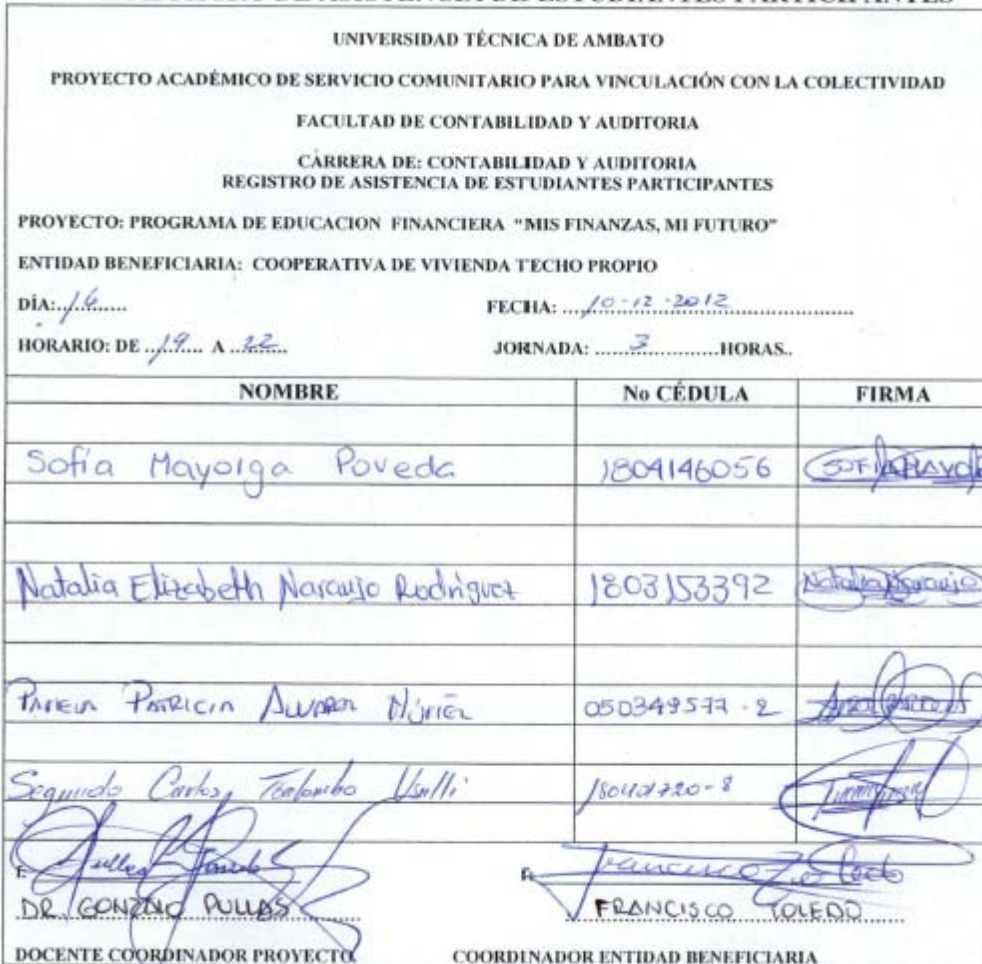 UNIVERSIDAD TÉCNICA DE AMBATO
PROYECTO ACADÉMICO DE SERVICIO COMUNITARIO PARA VINCULACIÓN CON LA COLECTIVIDAD
FACULTAD DE CONTABILIDAD Y AUDITORIA
CARRERA DE: CONTABILIDAD Y AUDITORIA
REGISTRO DE ASISTENCIA DE ESTUDIANTES PARTICIPANTES
PROYECTO: PROGRAMA DE EDUCACION FINANCIERA "MIS FINANZAS, MI FUTURO"
ENTIDAD BENEFICIARIA: COOPERATIVA DE VIVIENDA TECHO PROPIO
DÍA: FECHA: 10-12-2012
HORARIO: DE 19 A 22 JORNADA: 3 HORAS..
NOMBRE No CÉDULA FIRMA
Sofía Mayorga Poveda 1804146056
Natalia Elizabeth Naranjo Rodríguez 1803153392 Natalia Naranjo
Patricia 050349577-2
Segundo Carlos
F. F.
DR. GONZALO PULLAS FRANCISCO TOLEDO
DOCENTE COORDINADOR PROYECTO COORDINADOR ENTIDAD BENEFICIARIA